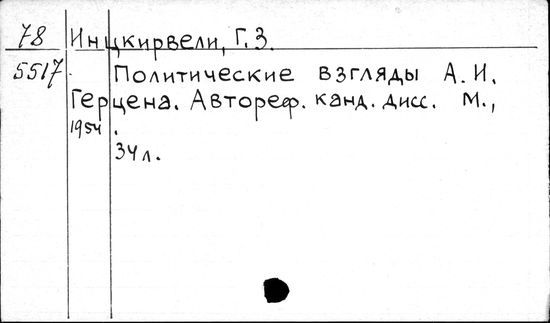 78 Инцкирвели, Г.З.
5517 Политические взгляды А.И.
Герцена. Автореф. канд. дисс. М.,
1954.
34л.